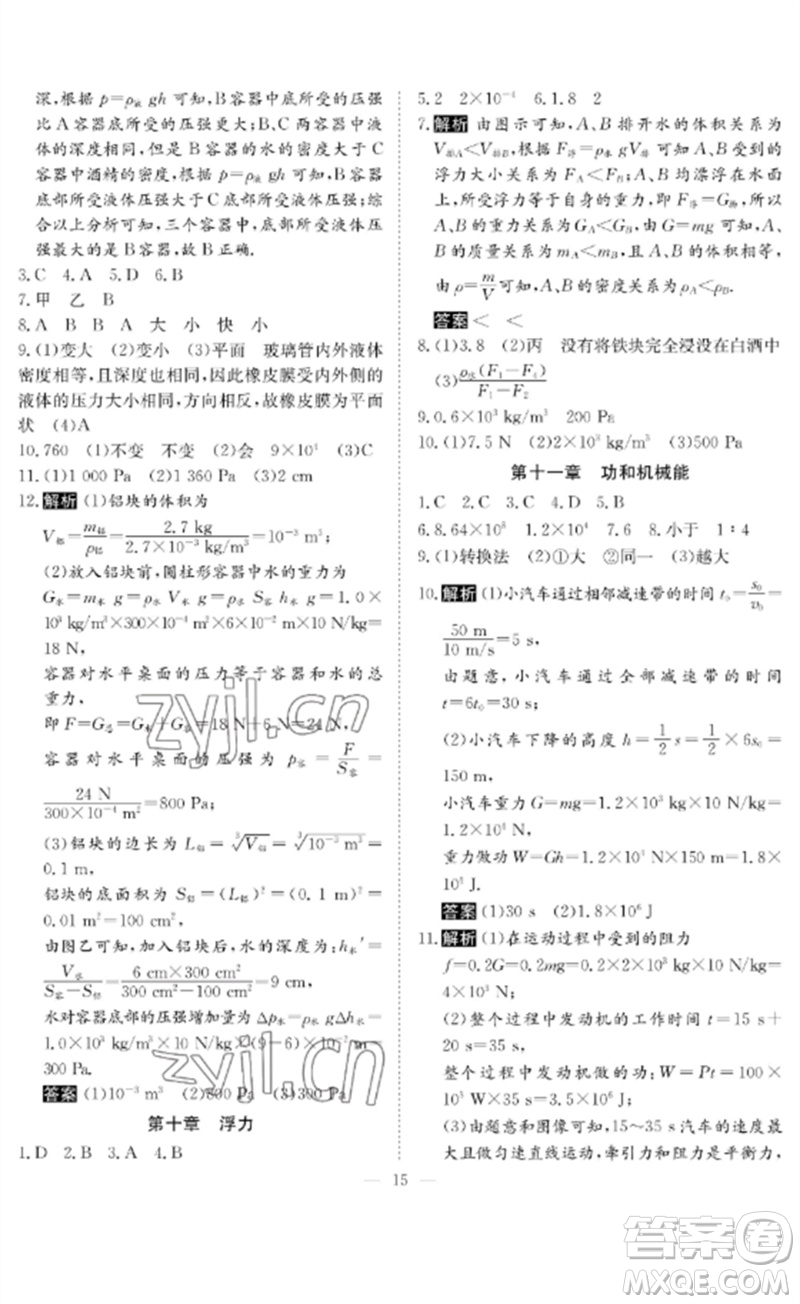 深,根据 p=ρ液 gh 可知,B容器中底所受的压强
比A容器底所受的压强更大;B、C 两容器中液
体的深度相同,但是 B 容器的水的密度大于 C
容器中酒精的密度,根据 p=ρ液 gh 可知,B 容器
底部所受液体压强大于C底部所受液体压强;综
合以上分析可知,三个容器中,底部所受液体压
强最大的是 B 容器,故 B 正确.
3.C 4.A 5.D 6.B
7.甲 乙 B
8.A B B A 大 小 快 小
9.(1)变大 (2)变小 (3)平面 玻璃管内外液体
密度相等,且深度也相同,因此橡皮膜受内外两侧的
液体的压力大小相同,方向相反,故橡皮膜为平面
状 (4)A
10.760 (1)不变 不变 (2)会 9×10⁴ (3)C
11.(1)1 000 Pa (2)1 360 Pa (3)C
12.解析 (1)铝块的体积为
V铝=m铝/ρ铝=2.7 kg/2.7×10⁻³ kg/m³=10⁻³ m³
(2)放入铝块前,圆柱形容器中水的重力为
G水=m水 g=ρ水 V水 g=ρ水 S容 h水 g=1.0×
10³ kg/m³×300×10⁻⁴ m²×6×10⁻² m×10 N/kg=
18 N,
容器对水平桌面的压力等于容器和水的总
重力,
即 F=G总=G水+G容=18 N+6 N=24 N,
容器对水平桌面的压强为 p容=F/S容=
24 N/300×10⁻⁴ m²=800 Pa;
(3)铝块的边长为 L铝=∛V铝=∛10⁻³ m³=
0.1 m,
铝块的底面积为 S铝=(L铝)²=(0.1 m)²=
0.01 m²=100 cm²,
由图乙可知,加入铝块后,水的深度为:h水′=
V水/S容−S铝=6 cm×300 cm²/300 cm²−100 cm²=9 cm,
水对容器底部的压强增加量为 Δp水=ρ水gΔh水=
1.0×10³ kg/m³×10 N/kg×(9−6)×10⁻² m=
300 Pa.
答案 (1)10⁻³ m³ (2)800 Pa (3)300 Pa
第十章 浮力
1.D 2.B 3.A 4.B
5.2 2×10⁻⁴ 6.1.8 2
7.解析 由图示可知,A、B 排开水的体积关系为
V排A<V排B,根据 F浮=ρ水 gV排 可知 A、B受到的
浮力大小关系为 FA<FB;A、B 均漂浮在水面
上,所受浮力等于自身的重力,即 F浮=G物,所以
A、B 的重力关系为 GA<GB,由 G=mg 可知,A、
B 的质量关系为 mA<mB,A、B 的体积相等,
由 ρ=m/V 可知,A、B 的密度关系为 ρA<ρB.
答案 < <
8.(1)3.8 (2)丙 没有将铁块完全浸没在白酒中
(3)ρ水(F₁−F₄)/F₁−F₃
9.0.6×10³ kg/m³ 200 Pa
10.(1)7.5 N (2)2×10³ kg/m³ (3)500 Pa
第十一章 功和机械能
1.C 2.C 3.C 4.D 5.B
6.8.64×10⁸ 1.2×10⁴ 7.6 8.小于 1∶4
9.(1)转换法 (2)①大 ②同一 (3)越大
10.解析 (1)小汽车通过相邻减速带的时间 t₀=s₀/v₀=
50 m/10 m/s=5 s,
由题意,小汽车通过全部减速带的时间
t=6t₀=30 s;
(2)小汽车下降的高度 h=1/2 s=1/2×6s₀=
150 m,
小汽车重力 G=mg=1.2×10³ kg×10 N/kg=
1.2×10⁴ N,
重力做功 W=Gh=1.2×10⁴ N×150 m=1.8×
10⁶ J.
答案 (1)30 s (2)1.8×10⁶ J
11.解析 (1)在运动过程中受到的阻力
f=0.2G=0.2mg=0.2×2×10³ kg×10 N/kg=
4×10³ N;
(2)整个过程中发动机的工作时间 t=15 s+
20 s=35 s,
整个过程中发动机做的功:W=Pt=100×
10³ W×35 s=3.5×10⁶ J;
(3)由题意和图像可知,15~35 s汽车在水平路面上
是做匀速直线运动,牵引力和阻力是平衡力,
15
zyjl.cn
zyjl.cn
答案圈
MXQE.COM